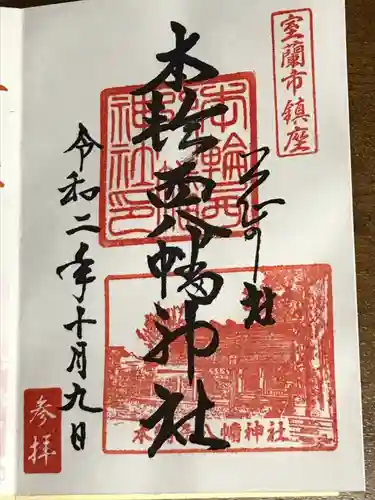 室蘭市鎮座
本輪西八幡神社
本輪西八幡神社印
令和二年十月九日
参拝
幡神社